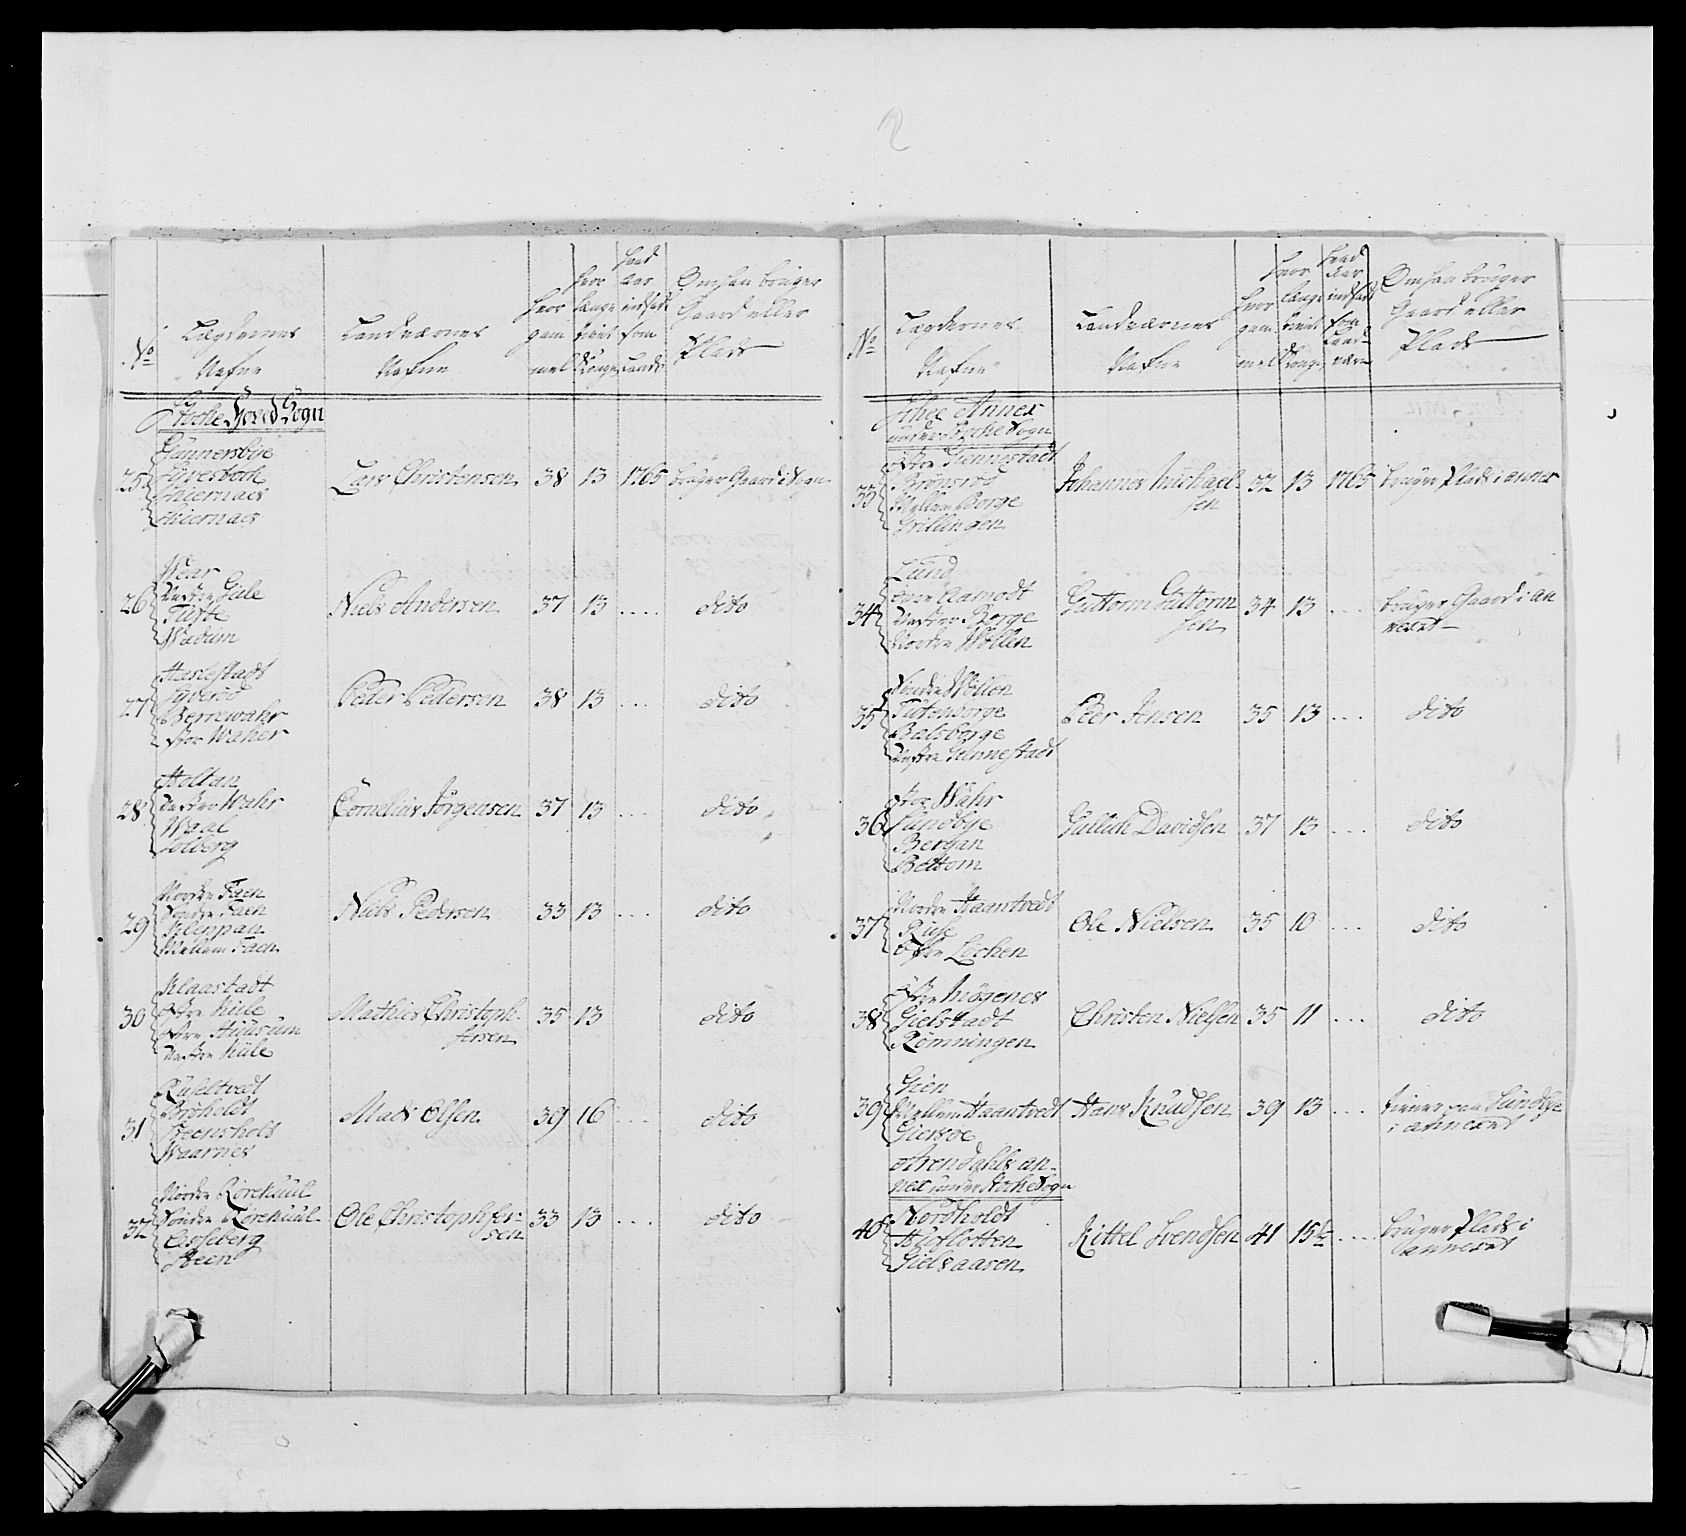 2
No
Lægdernes
Nafne
Landværnes
Nafne
hvor
gam
mel
hvor
længe
tient
Konge
hvad
aar
indsadt
som
Landv
Om han bruger
Gaard eller
Plads
Stoche Hoved Sogn
25
Gunnersbye
Agersbock
Hiernaes
Hiernaes
Lars Christensen 38 13 1765 bruger Gaard i Sogn
26
Wear
Vestre Gule
Tufte
Wadum
Niels Andersen 37 13 .... dito
27
Haslestadt
Syversö
Borrewahr
stor Waher
Peder Pedersen 38 13 ... dito
28
Holtan
Vestre Wahr
Waal
Solberg
Cornelius Jörgensen 37 13 ... dito
29
Nordre Faen
Söndre Faen
Klenpan
Mellem Faen
Niels Pedersen 33 13 ... dito
30
Klaastadt
östre Kule
östre Huusum
Vestre Kule
Mathies Christoph-
fersen 35 13 dito
31
Ruseltvedt
Broholdt
Steensholt
Waarnes
Mads Olsen 39 16 ... dito
32
Nordre Rorekuul
Söndre Rorekuul
Olsseberg
Steen
Ole Christophfer-
sen 33 13 ... dito
No
Lægdernes
Nafne
Landværnes
Nafne
hvor
gam
mel
hvor
længe
tient
Konge
hvad
Aar
indsadt
som
Land-
værn
Om han bruger
Gaard eller
Plads
Annex
under Stoche Sogn
33
östre Sunnestadt
Brönsrö
Mellem Borge
Grillingen
Johannes Michael-
sen 32 13 1765 bruger Plads i annex
34
Lund
övre Aamodt
Vestre Borge
Nordre Wöllen
Guttorm Guttorm
sen 34 13 ... bruger Gaard i an
nexet
35
Söndre Wöllen
Tutenborge
Balsborge
Vestre Sunnestadt
Peer Jensen 35 13 .... dito
36
stor Wahr
Sundbye
Bergan
Bottom
Gullich Davidsen 37 13 .... dito
37
Nordre Haantvedt
Ruse
Östre Löchen
Ole Nielsen 35 10 .... dito
38
östre Mögenes
Gielstadt
Römningen
Christen Nielsen 35 11 .... dito
39
Gien
Mellem Haantvedt
Giersöe
Hans Knudsen 39 13 .... tiener paa Sundbye
i annexet
Arendahls an-
nex under Stoche Sogn
40
Nordholdt
Huslotten
Gielsaasen
Kittel Svendsen 41 15½ .... bruger Plads i
annexet